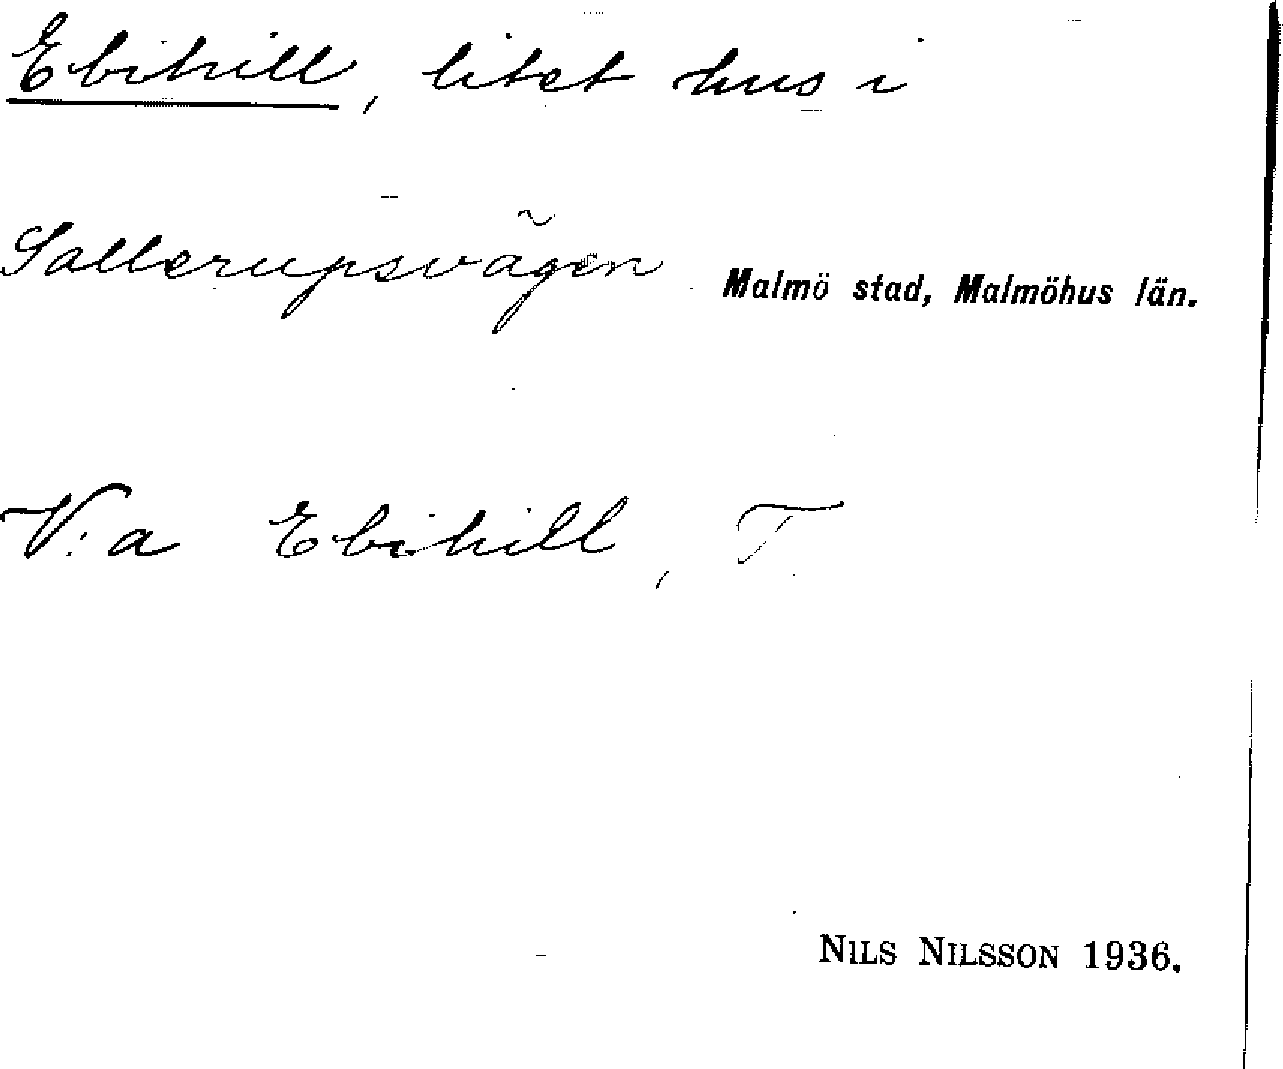 Ebihill, litet hus i
Sallerupsvägen Malmö stad, Malmöhus län.
V:a Ebihill, T.
NILS NILSSON 1936.